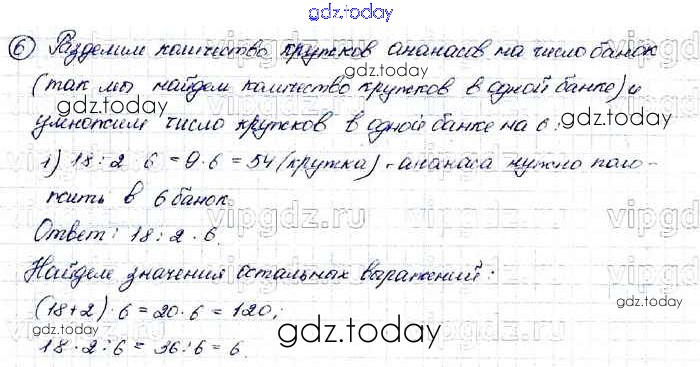 gdz.today
⑥ Разделим количество кружков ананасов на число банок
(так мы найдем количество кружков в одной банке) и
gdz.today gdz.today
умножим число кружков в одной банке на 6:
1) 18 : 2 · 6 = 9 · 6 = 54 (кружка) - ананаса нужно поло-
vipgdz.ru vipgdz
жить в 6 банок.
Ответ: 18 : 2 · 6.
vipgdz.ru vipgdz
Найдем значения остальных выражений:
(18+2) · 6 = 20 · 6 = 120;
gdz.today gdz.today
gdz.today
18 · 2 : 6 = 36 : 6 = 6.